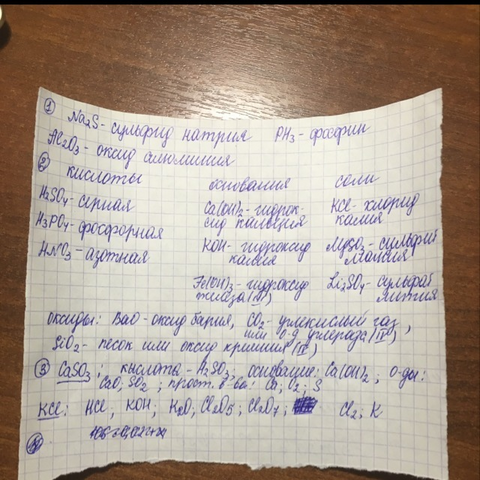 ① Na₂S - сульфид натрия PH₃ - фосфин
Al₂O₃ - оксид алюминия
② кислоты основания соли
H₂SO₄ - серная Ca(OH)₂ - гидрок- KCl - хлорид
сид кальция калия
H₃PO₄ - фосфорная KOH - гидроксид MgSO₃ - сульфит
калия магния
HNO₃ - азотная Fe(OH)₃ - гидроксид Li₂SO₄ - сульфат
железа (III) лития
оксиды: BaO - оксид бария, CO₂ - углекислый газ,
или о-д углерода (IV)
SiO₂ - песок или оксид кремния (IV)
③ CaSO₃; кислота - H₂SO₃, основание: Ca(OH)₂, о-ды:
CaO, SO₂; прост. в-ва: Ca, O₂; S
KCl: HCl, KOH; H₂O; Cl₂O₅; Cl₂O₇; Cl₂; K